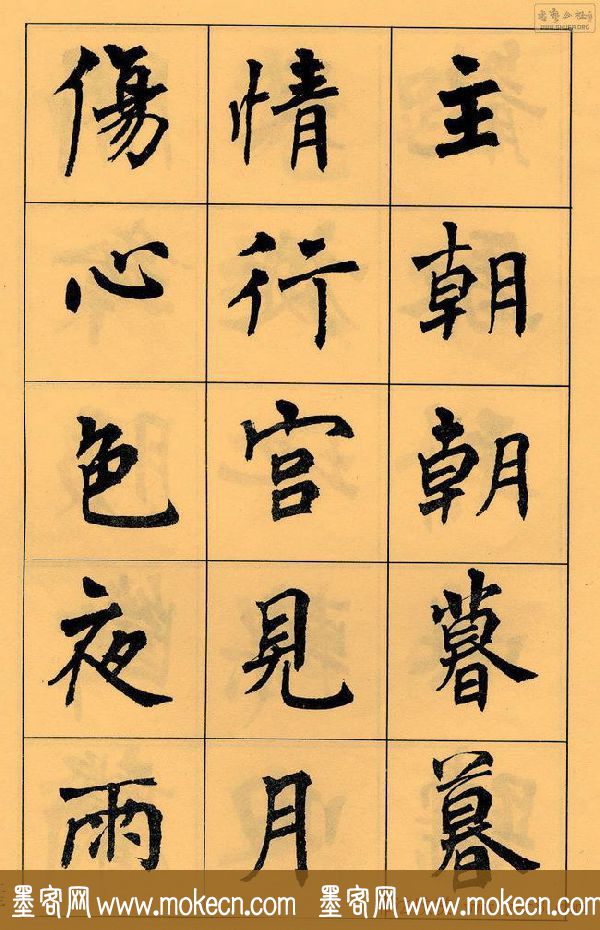 主朝朝暮暮
情行宫見月
傷心色夜雨
墨客网 www.mokecn.com 墨客网 www.mokecn.com